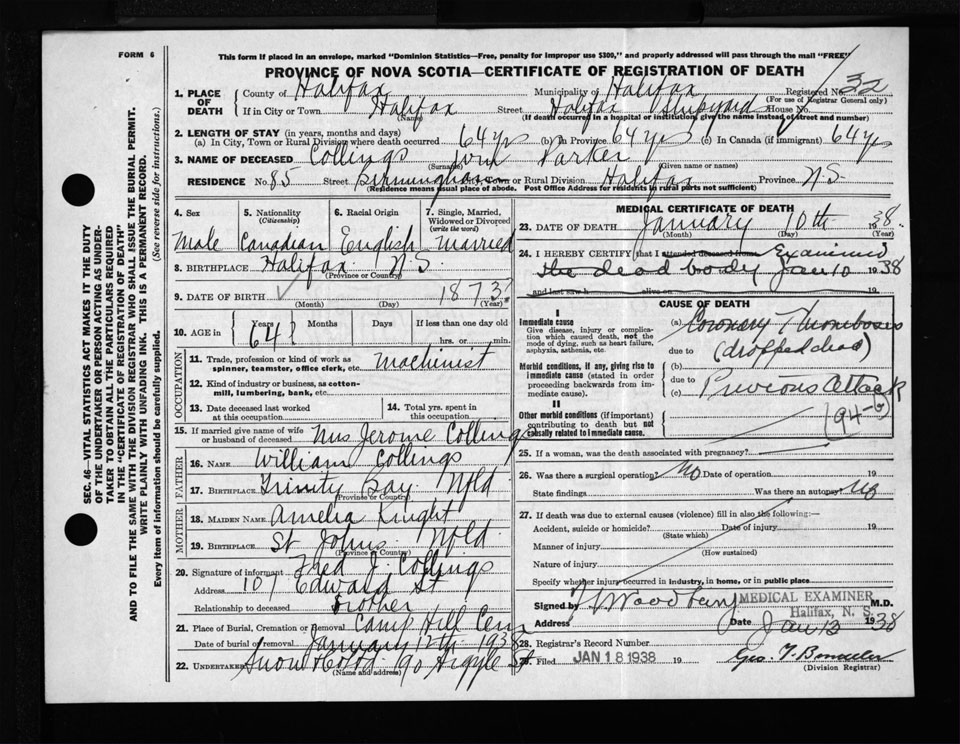 FORM 6
This form if placed in an envelope, marked "Dominion Statistics—Free, penalty for improper use $300," and properly addressed will pass through the mail "FREE"
PROVINCE OF NOVA SCOTIA—CERTIFICATE OF REGISTRATION OF DEATH
1. PLACE OF DEATH
County of Halifax Municipality of Halifax Registered No. 32
(For use of Registrar General only)
If in City or Town Halifax Street Halifax Shipyard House No.
(Name) (If death occurred in a hospital or institution, give the name instead of street and number)
2. LENGTH OF STAY (in years, months and days)
(a) In City, Town or Rural Division where death occurred 64 yrs (b) In Province 64 yrs (c) In Canada (if immigrant) 64 yrs
3. NAME OF DECEASED Collings Wm Parker
(Surname) (Given name or names)
RESIDENCE No. 85 Street Birmingham City, Town or Rural Division Halifax Province N.S.
(Residence means usual place of abode. Post Office Address for residents in rural parts not sufficient)
4. Sex
Male
5. Nationality
(Citizenship)
Canadian
6. Racial Origin
English
7. Single, Married, Widowed or Divorced
(write the word)
Married
8. BIRTHPLACE Halifax N.S.
(Province or Country)
9. DATE OF BIRTH 1873?
(Month) (Day) (Year)
10. AGE in Years Months Days If less than one day old
64? hrs. or min.
OCCUPATION
11. Trade, profession or kind of work as spinner, teamster, office clerk, etc. Machinist
12. Kind of industry or business, as cotton-mill, lumbering, bank, etc.
13. Date deceased last worked at this occupation
14. Total yrs. spent in this occupation
15. If married give name of wife or husband of deceased Mrs Jerome Collings
FATHER
16. NAME William Collings
17. BIRTHPLACE Trinity Bay Nfld
(Province or Country)
MOTHER
18. MAIDEN NAME Amelia Knight
19. BIRTHPLACE St Johns Nfld
(Province or Country)
20. Signature of informant Fred J. Collings
Address 107 Edward St
Relationship to deceased Brother
21. Place of Burial, Cremation or Removal Camp Hill Cem
Date of burial or removal January 12th 1938
22. UNDERTAKER Snow & Co Ltd 90 Argyle St
(Name and address)
MEDICAL CERTIFICATE OF DEATH
23. DATE OF DEATH January 10th 1938
(Month) (Day) (Year)
24. I HEREBY CERTIFY that I attended deceased from Examined
the dead body Jan 10 1938
and last saw h alive on 19
CAUSE OF DEATH
I
Immediate cause
Give disease, injury or complication which caused death, not the mode of dying, such as heart failure, asphyxia, asthenia, etc.
(a) Coronary Thrombosis
due to (dropped dead)
Morbid conditions, if any, giving rise to immediate cause (stated in order proceeding backwards from immediate cause).
(b)
due to Previous Attack
(c)
II
Other morbid conditions (if important) contributing to death but not causally related to immediate cause.
94-
25. If a woman, was the death associated with pregnancy?
26. Was there a surgical operation? No Date of operation 19
State findings Was there an autopsy? No
27. If death was due to external causes (violence) fill in also the following:—
Accident, suicide or homicide? Date of injury 19
(State which)
Manner of injury
(How sustained)
Nature of injury
Specify whether injury occurred in industry, in home, or in public place
Signed by Woodbury M.D.
MEDICAL EXAMINER
Halifax, N. S.
Address Date Jan 13 1938
28. Registrar's Record Number
29. Filed JAN 18 1938 19
(Division Registrar)
SEC. 46—VITAL STATISTICS ACT MAKES IT THE DUTY OF THE UNDERTAKER OR PERSON ACTING AS UNDERTAKER TO OBTAIN ALL THE PARTICULARS REQUIRED IN THE "CERTIFICATE OF REGISTRATION OF DEATH" AND TO FILE THE SAME WITH THE DIVISION REGISTRAR WHO SHALL ISSUE THE BURIAL PERMIT.
WRITE PLAINLY WITH UNFADING INK. THIS IS A PERMANENT RECORD.
Every item of information should be carefully supplied. (See reverse side for instructions.)